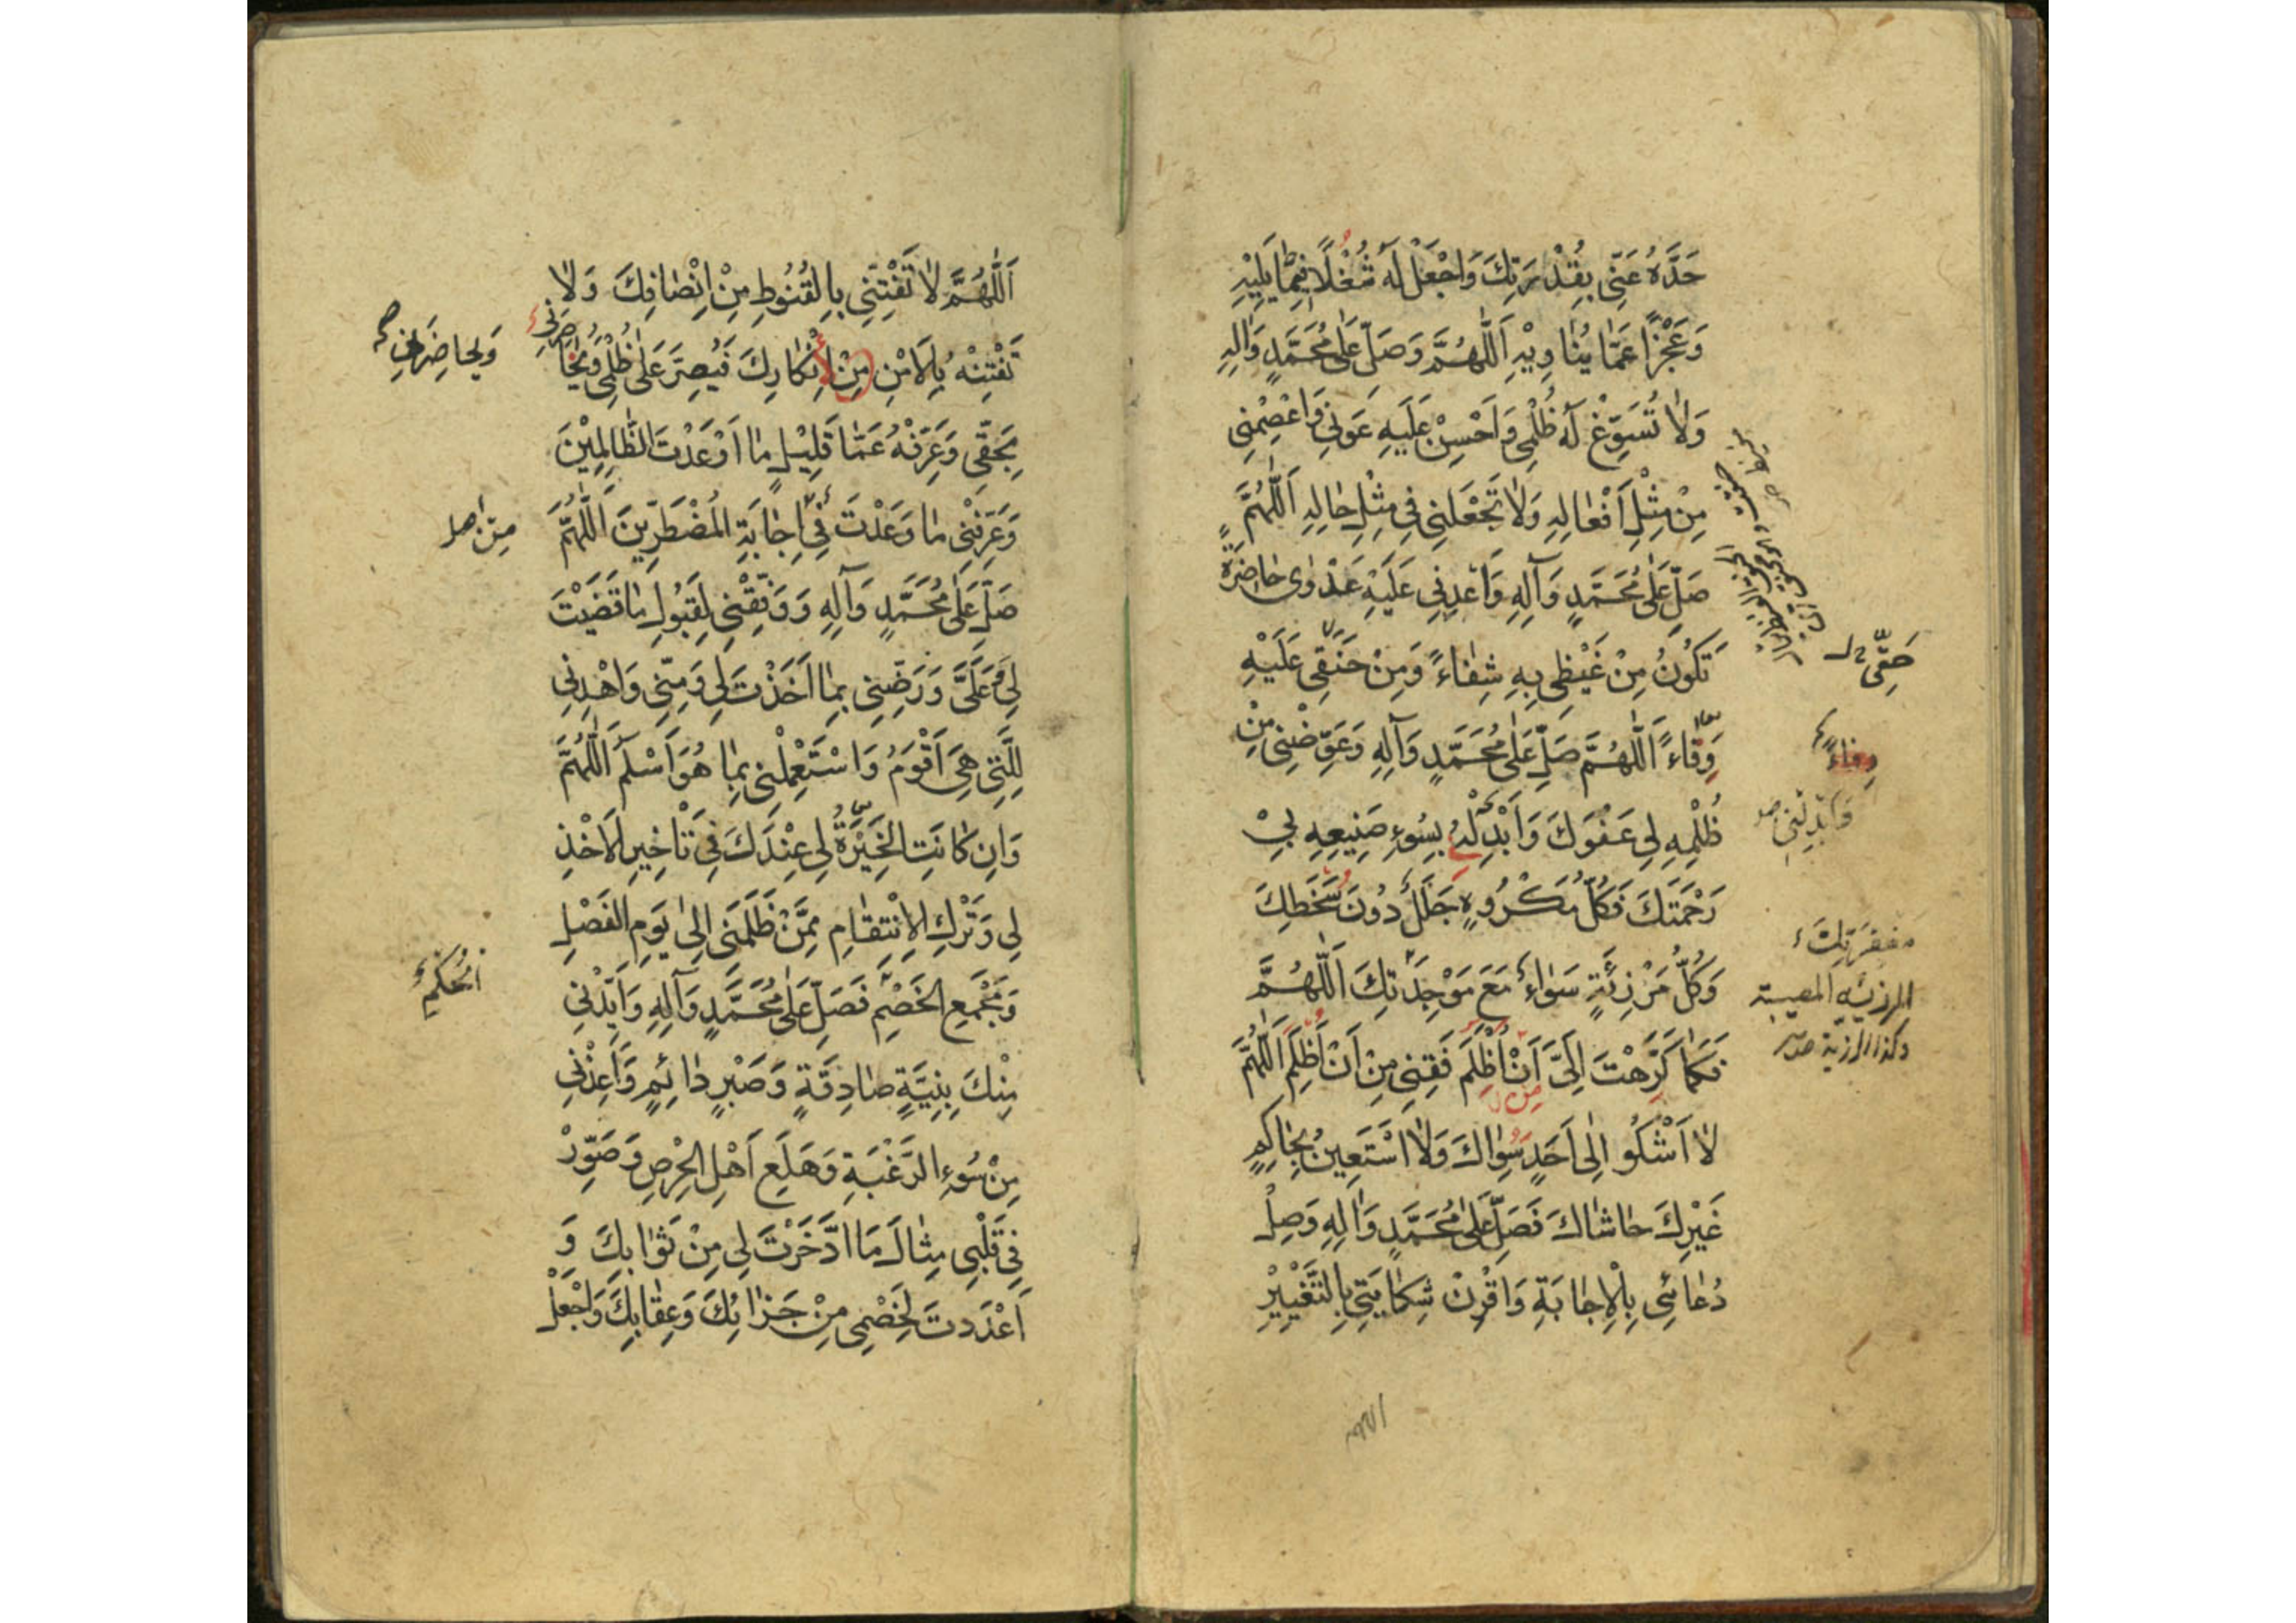 حَدَّهُ عَنّى بِقُدْرَتِكَ وَاجْعَلْ لَهُ شُغْلًا فِيمَا يَلِيْهِ
وَعَجْزًا عَمَّا يُنَاوِيْهِ اَللّٰهُمَّ وَصَلِّ عَلٰى مُحَمَّدٍ وَاٰلِهِ
وَلَا تُسَوِّغْ لَهُ ظُلْمِى وَاَحْسِنْ عَلَيْهِ عَوْنِى وَاعْصِمْنِى
مِنْ مِثْلِ اَفْعَالِهِ وَلَا تَجْعَلْنِى فِى مِثْلِ حَالِهِ اَللّٰهُمَّ
صَلِّ عَلٰى مُحَمَّدٍ وَآلِهِ وَاَعْدِنِى عَلَيْهِ عَدْوٰى حَاضِرَةً
تَكُونُ مِنْ غَيْظِى بِهِ شِفَاءً وَمِنْ حَنَقِى عَلَيْهِ
حَنَقِى
وَفَاءً اَللّٰهُمَّ صَلِّ عَلٰى مُحَمَّدٍ وَآلِهِ وَعَوِّضْنِى مِنْ
وِقَاءً
ظُلْمِهِ لِى عَفْوَكَ وَاَبْدِلْنِى بِسُوءِ صَنِيعِهِ بِىْ
رَحْمَتَكَ فَكُلُّ مَكْرُوهٍ جَلَلٌ دُونَ سَخَطِكَ
مَغْفِرَتِكَ
وَكُلُّ مَرْزِئَةٍ سَوَاءٌ مَعَ مَوْجِدَتِكَ اَللّٰهُمَّ
المرزئة المصيبة
وكذا الرزية
فَكَمَا كَرَّهْتَ اِلَىَّ اَنْ اُظْلَمَ فَقِنِى مِنْ اَنْ اَظْلِمَ اَللّٰهُمَّ
لَا اَشْكُو اِلٰى اَحَدٍ سِوَاكَ وَلَا اَسْتَعِينُ بِحَاكِمٍ
غَيْرِكَ حَاشَاكَ فَصَلِّ عَلٰى مُحَمَّدٍ وَاٰلِهِ وَصِلْ
دُعَائِى بِالْاِجَابَةِ وَاقْرِنْ شِكَايَتِى بِالتَّغْيِيْرِ
اَللّٰهُمَّ لَا تَفْتِنِّى بِالْقُنُوطِ مِنْ اِنْصَافِكَ وَلَا
تَفْتِنْهُ بِالْاَمْنِ مِنْ اِنْكَارِكَ فَيُصِرَّ عَلٰى ظُلْمِى وَيُحَاضِرَنِى
وَيُحَاضِرَنِى
بِحَقِّى وَعَرِّفْهُ عَمَّا قَلِيْلٍ مَا اَوْعَدْتَ الظَّالِمِيْنَ
وَعَرِّفْنِى مَا وَعَدْتَ فِى اِجَابَةِ الْمُضْطَرِّينَ اَللّٰهُمَّ
مِنْ
صَلِّ عَلٰى مُحَمَّدٍ وَآلِهِ وَوَفِّقْنِى لِقَبُولِ مَا قَضَيْتَ
لِى وَعَلَىَّ وَرَضِّنِى بِمَا اَخَذْتَ لِى وَمِنِّى وَاهْدِنِى
لِلَّتِى هِىَ اَقْوَمُ وَاسْتَعْمِلْنِى بِمَا هُوَ اَسْلَمُ اَللّٰهُمَّ
وَاِنْ كَانَتِ الْخِيَرَةُ لِى عِنْدَكَ فِى تَأْخِيرِ الْاَخْذِ
لِى وَتَرْكِ الْاِنْتِقَامِ مِمَّنْ ظَلَمَنِى اِلٰى يَوْمِ الْفَصْلِ
وَمَجْمَعِ الْخَصْمِ فَصَلِّ عَلٰى مُحَمَّدٍ وَآلِهِ وَاَيِّدْنِى
مِنْكَ بِنِيَّةٍ صَادِقَةٍ وَصَبْرٍ دَائِمٍ وَاَعِذْنِى
مِنْ سُوءِ الرَّغْبَةِ وَهَلَعِ اَهْلِ الْحِرْصِ وَصَوِّرْ
فِى قَلْبِى مِثَالَ مَا ادَّخَرْتَ لِى مِنْ ثَوَابِكَ وَ
اَعْدَدْتَ لِخَصْمِى مِنْ جَزَائِكَ وَعِقَابِكَ وَاجْعَلْ